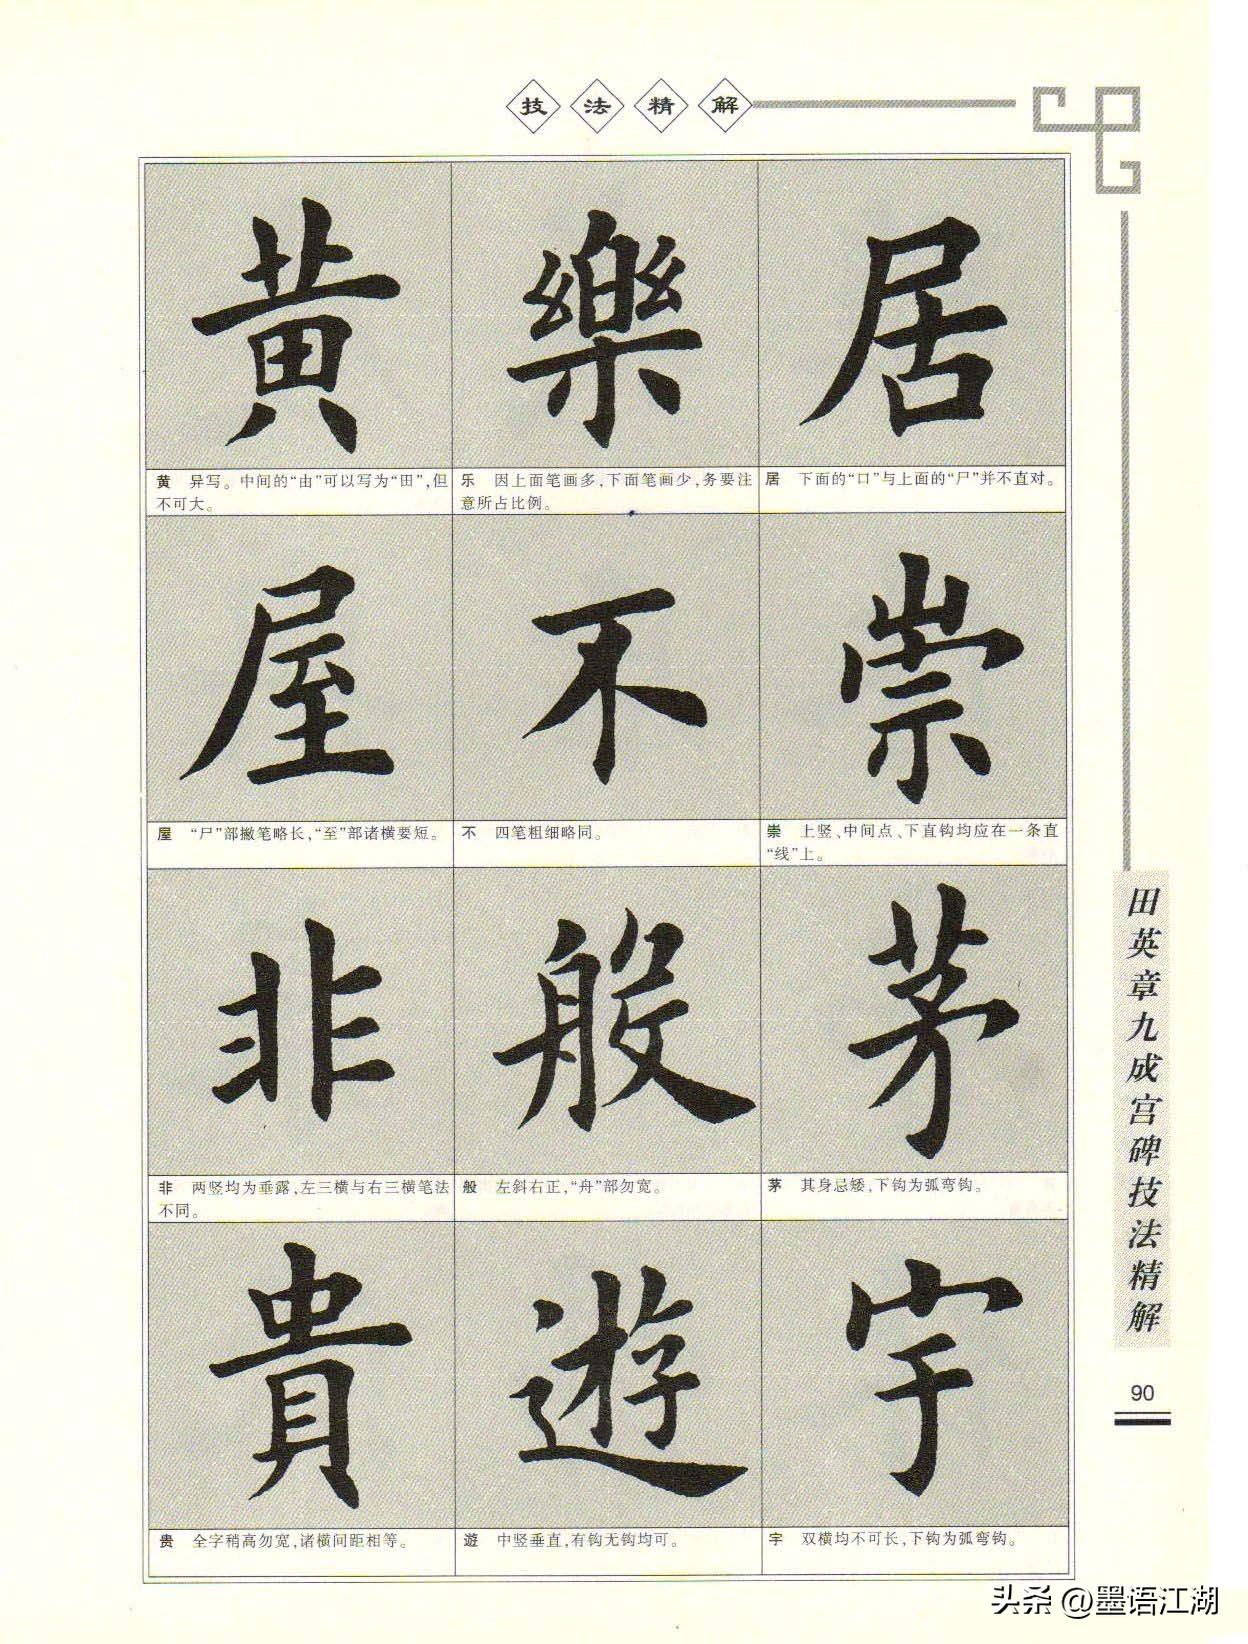 技法精解
黄 樂 居
黄 异写。中间的“由”可以写为“田”,但
不可大。
乐 因上面笔画多,下面笔画少,务要注
意所占比例。
居 下面的“口”与上面的“尸”并不直对。
屋 不 崇
屋 “尸”部撇笔略长,“至”部诸横要短。
不 四笔粗细略同。
崇 上竖、中间点、下直钩均应在一条直
“线”上。
非 般 茅
非 两竖均为垂露,左三横与右三横笔法
不同。
般 左斜右正,“舟”部勿宽。
茅 其身忌矮,下钩为弧弯钩。
貴 遊 宇
贵 全字稍高勿宽,诸横间距相等。
遊 中竖垂直,有钩无钩均可。
宇 双横均不可长,下钩为弧弯钩。
田英章九成宫碑技法精解
90
头条 @墨语江湖